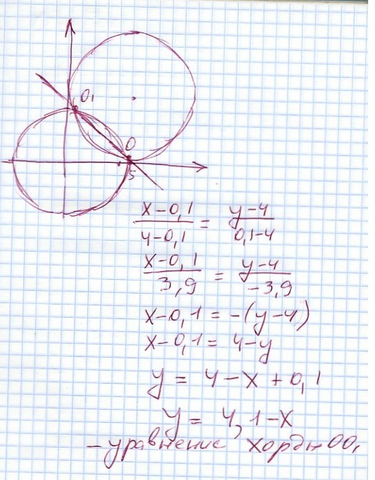 O₁
O
5
x-0,1/4-0,1 = y-4/0,1-4
x-0,1/3,9 = y-4/-3,9
x-0,1 = -(y-4)
x-0,1 = 4-y
y = 4-x+0,1
y = 4,1-x
-уравнение хорды OO₁